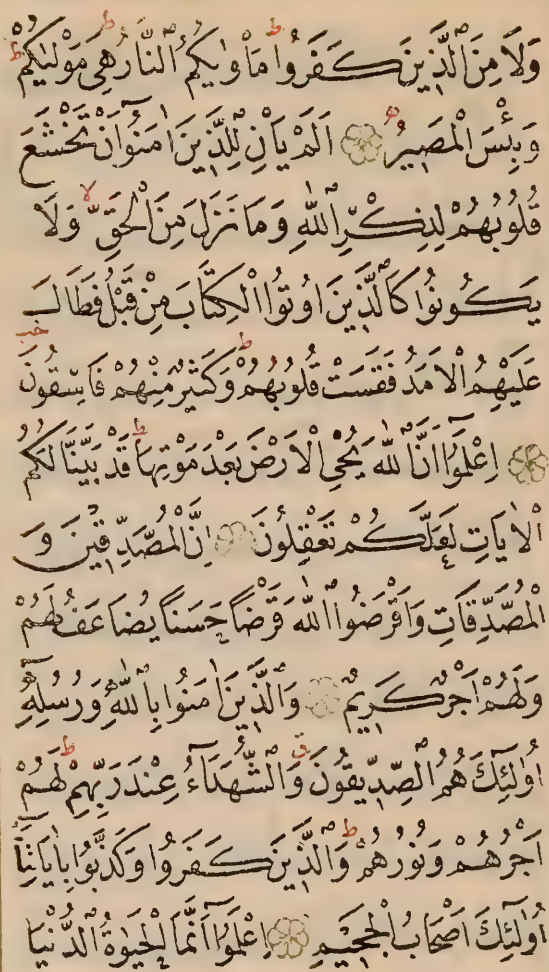 وَلَا مِنَ الَّذِينَ كَفَرُوا مَأْوٰيكُمُ النَّارُ هِيَ مَوْلٰيكُمْ
وَبِئْسَ الْمَصِيرُ اَلَمْ يَأْنِ لِلَّذِينَ اٰمَنُوٓا اَنْ تَخْشَعَ
قُلُوبُهُمْ لِذِكْرِ اللّٰهِ وَمَا نَزَلَ مِنَ الْحَقِّ وَلَا
يَكُونُوا كَالَّذِينَ اُوتُوا الْكِتَابَ مِنْ قَبْلُ فَطَالَ
عَلَيْهِمُ الْاَمَدُ فَقَسَتْ قُلُوبُهُمْ وَكَثِيرٌ مِنْهُمْ فَاسِقُونَ
اِعْلَمُوٓا اَنَّ اللّٰهَ يُحْيِ الْاَرْضَ بَعْدَ مَوْتِهَا قَدْ بَيَّنَّا لَكُمُ
الْاٰيَاتِ لَعَلَّكُمْ تَعْقِلُونَ اِنَّ الْمُصَّدِّقِينَ وَ
الْمُصَّدِّقَاتِ وَاَقْرَضُوا اللّٰهَ قَرْضًا حَسَنًا يُضَاعَفُ لَهُمْ
وَلَهُمْ اَجْرٌ كَرِيمٌ وَالَّذِينَ اٰمَنُوا بِاللّٰهِ وَرُسُلِهٖٓ
اُولٰٓئِكَ هُمُ الصِّدِّيقُونَ وَالشُّهَدَٓاءُ عِنْدَ رَبِّهِمْ لَهُمْ
اَجْرُهُمْ وَنُورُهُمْ وَالَّذِينَ كَفَرُوا وَكَذَّبُوا بِاٰيَاتِنَٓا
اُولٰٓئِكَ اَصْحَابُ الْجَحِيمِ اِعْلَمُوٓا اَنَّمَا الْحَيٰوةُ الدُّنْيَا